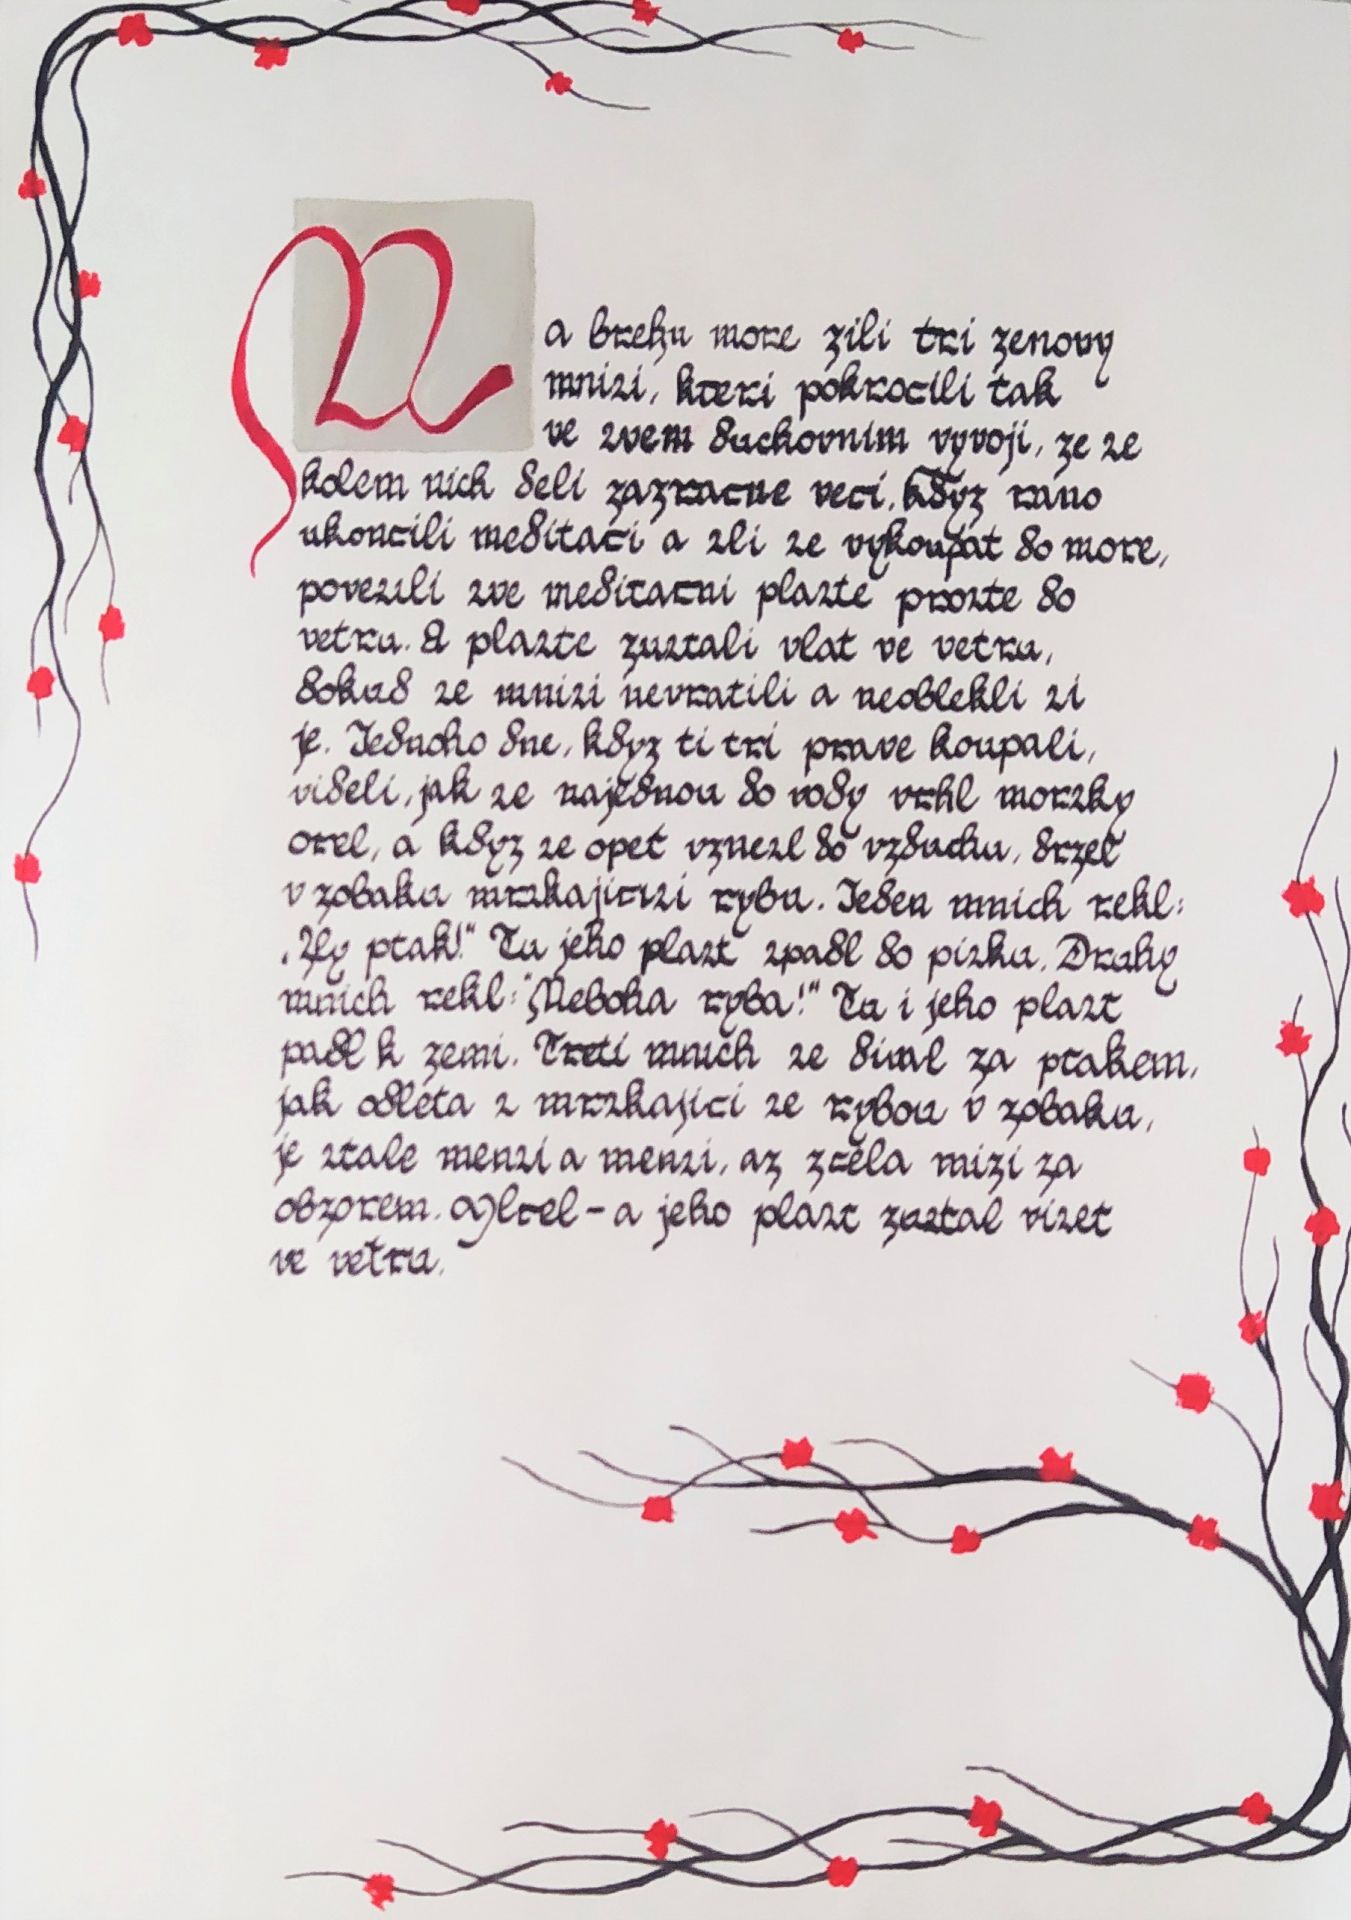 Na brehu more zili tri zenovy
mnizi, kteri pokrocili tak
ve svem duchovnim vyvoji, ze se
kolem nich deli zazracne veci. Kdyz rano
ukoncili meditaci a sli se vykoupat do more,
povesili sve meditacni plaste proste do
vetru. A plaste zustali vlat ve vetru,
dokud se mnizi nevratili a neoblekli si
je. Jednoho dne, kdyz ti tri prave koupali,
videli, jak se najednou do vody vrhl morsky
orel, a kdyz se opet vznesl do vzduchu, drzel
v zobaku mrskajicisi rybu. Jeden mnich rekl:
„Zly ptak!“ Tu jeho plast spadl do pisku. Druhy
mnich rekl: "Neboha ryba!“ Tu i jeho plast
padl k zemi. Treti mnich se dival za ptakem,
jak odleta s mrskajici se rybou v zobaku,
je stale mensi a mensi, az zcela mizi za
obzorem. Mlcel - a jeho plast zustal viset
ve vetru.